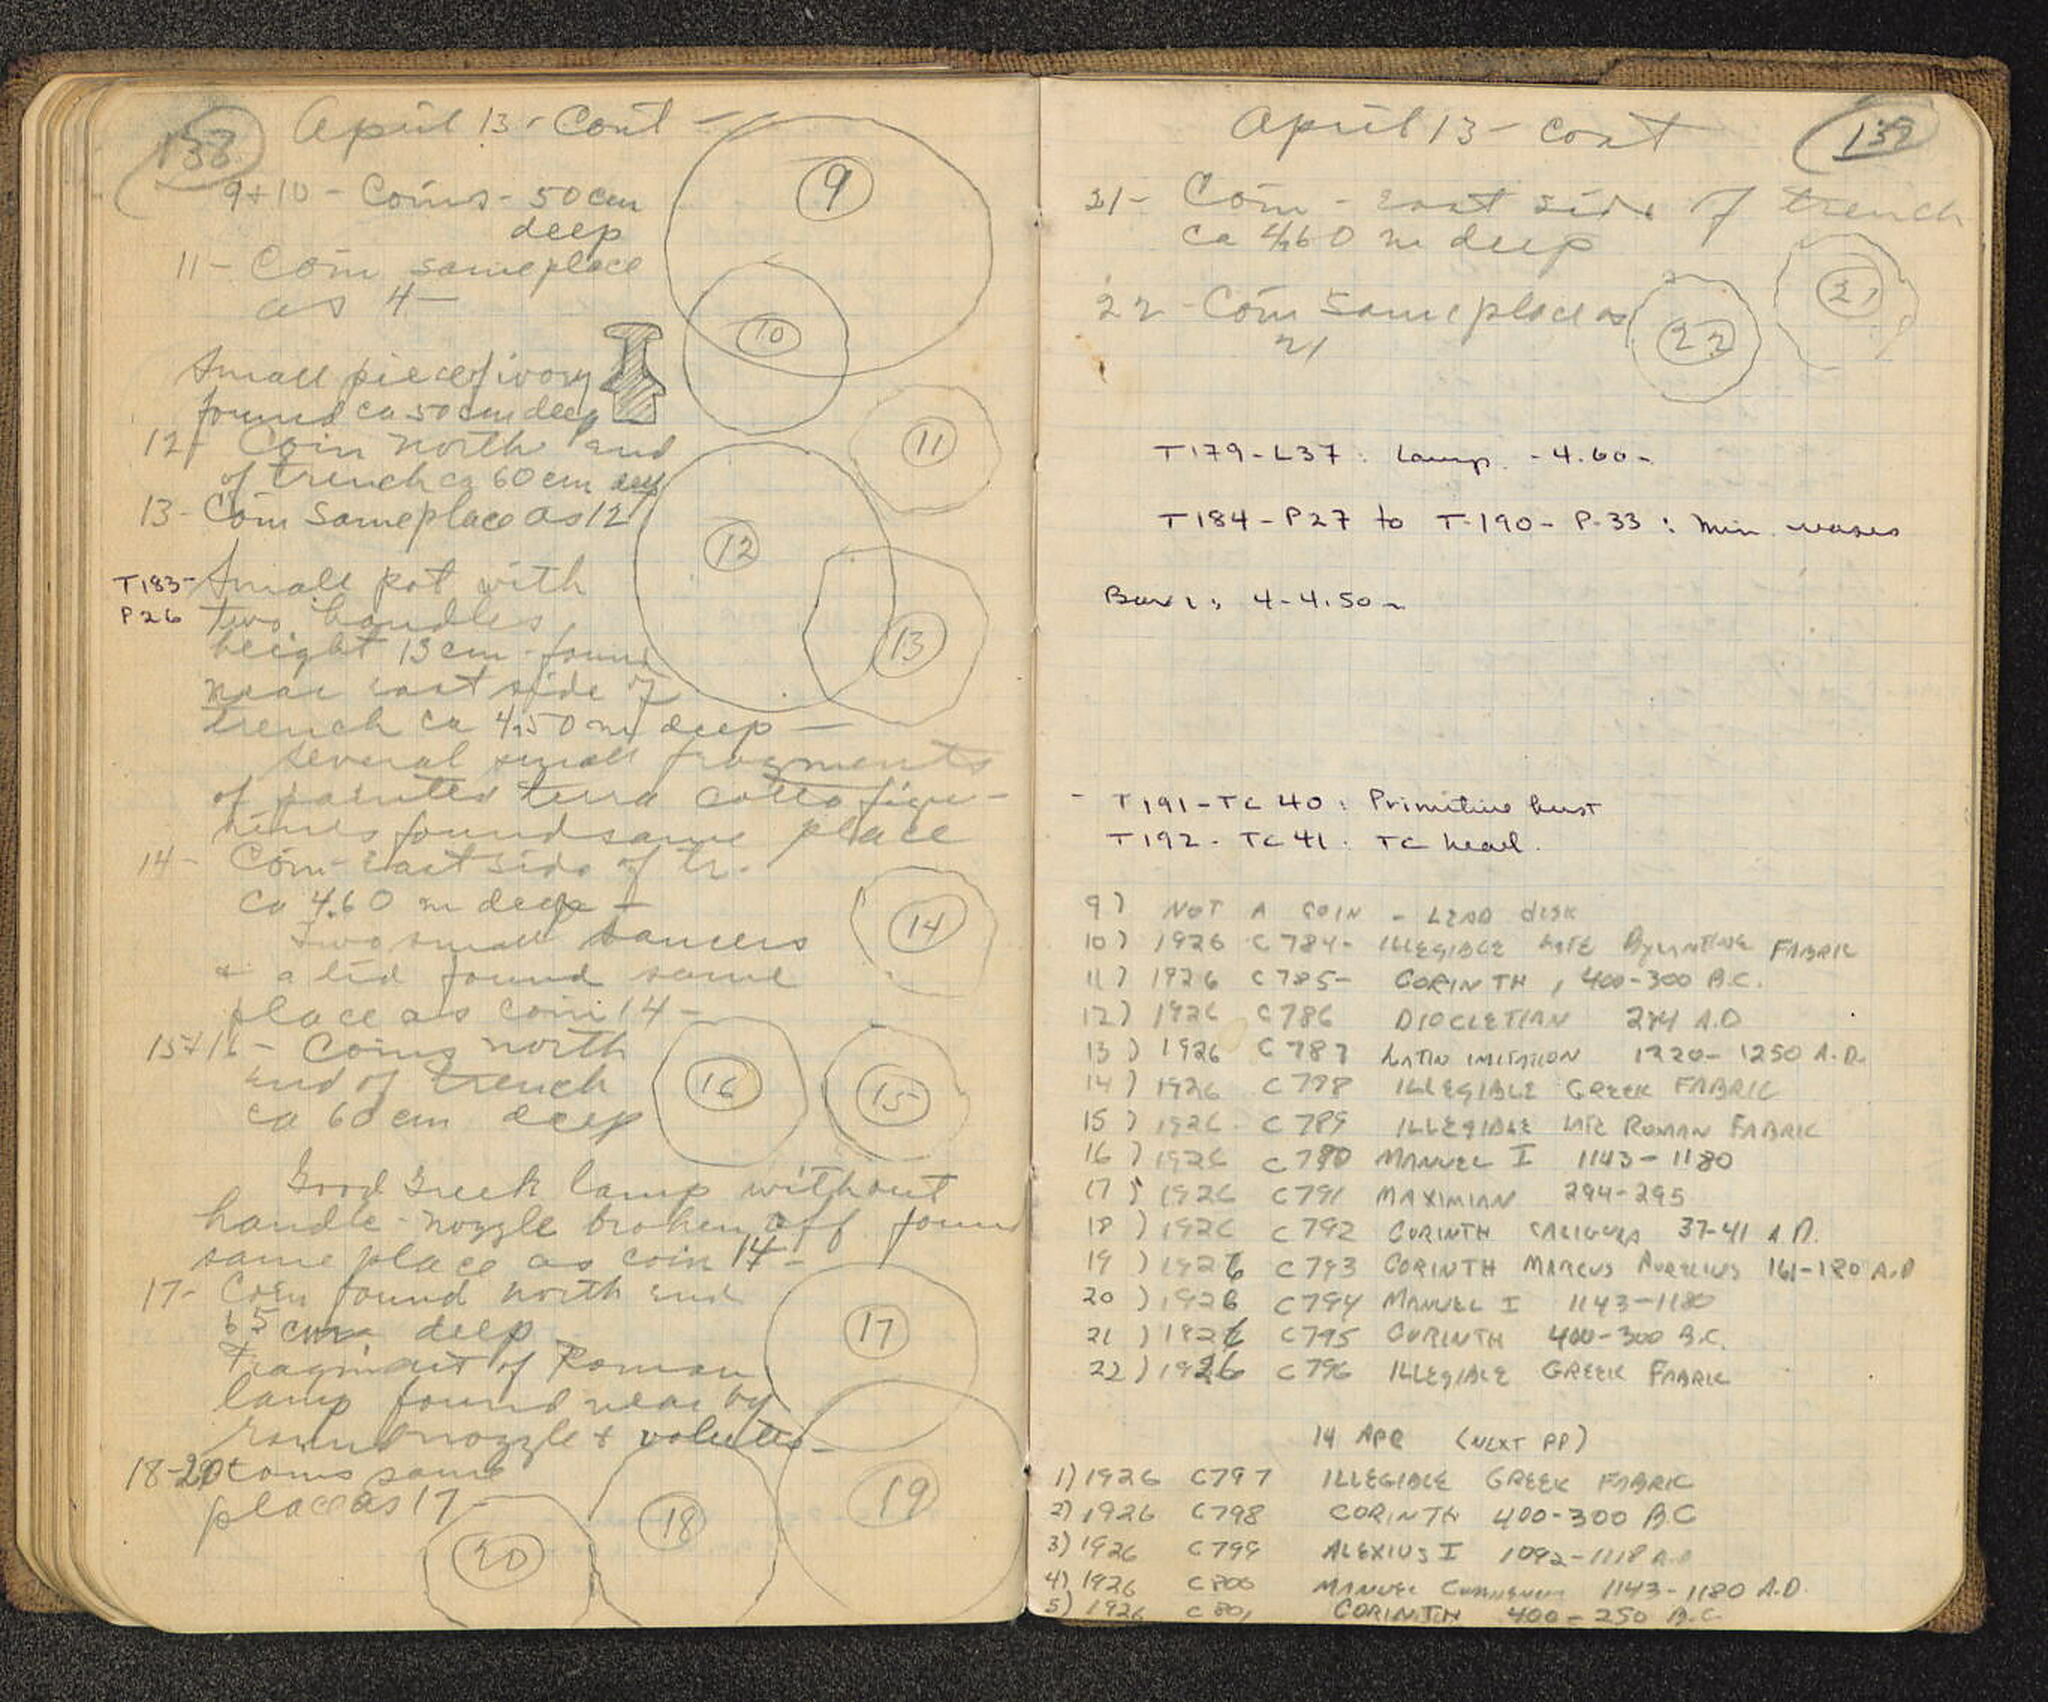 138
April 13 - Cont -
9+10 - Coins - 50 cm
deep
11 - Coin same place
as 4 -
Small piece of ivory
found ca 50 cm deep
12 - Coin north end
of trench ca 60 cm deep
13 - Coin same place as 12
T183- Small pot with
P26 two handles
height 13 cm - found
near east side of
trench ca 4,50 m deep -
Several small fragments
of painted terra cotta figu-
rines found same place
14 - Coin - east side of tr.
ca 4.60 m deep -
Two small saucers
+ a lid found same
place as coin 14 -
15+16 - Coins north
end of trench
ca 60 cm deep
Good Greek lamp without
handle - nozzle broken off found
same place as coin 14 -
17 - Coin found north end
65 cm deep
Fragment of Roman
lamp found near by
round nozzle + volutes -
18-20 Coins same
place as 17 -
9
10
11
12
13
14
16
15
17
19
18
20
April 13 - cont
139
21 - Coin - east side of trench
ca 4,60 m deep
22 - Coin same place as
21
22
21
T179 - L37 : Lamp. - 4.60 -
T184 - P27 to T-190 - P-33 : Min. vases
4 - 4.50 -
- T191 - TC 40 : Primitive bust
T192 - TC 41 . TC head .
9) NOT A COIN - LEAD DISK
10) 1926 C784 - ILLEGIBLE LATE BYZANTINE FABRIC
11) 1926 C785 - CORINTH , 400-300 B.C.
12) 1926 C786 DIOCLETIAN 294 A.D
13) 1926 C787 LATIN IMITATION 1220-1250 A.D.
14) 1926 C788 ILLEGIBLE GREEK FABRIC
15) 1926 C789 ILLEGIBLE LATE ROMAN FABRIC
16) 1926 C790 MANUEL I 1143-1180
17) 1926 C791 MAXIMIAN 294-295
18) 1926 C792 CORINTH CALIGULA 37-41 A.D.
19) 1926 C793 CORINTH MARCUS AURELIUS 161-180 A.D
20) 1926 C794 MANUEL I 1143-1180
21) 1926 C795 CORINTH 400-300 B.C.
22) 1926 C796 ILLEGIBLE GREEK FABRIC
14 APR (NEXT PP)
1) 1926 C797 ILLEGIBLE GREEK FABRIC
2) 1926 C798 CORINTH 400-300 B.C
3) 1926 C799 ALEXIUS I 1092-1118 A.D
4) 1926 C800 MANUEL COMNENUS 1143-1180 A.D.
5) 1926 C801 CORINTH 400-250 B.C.